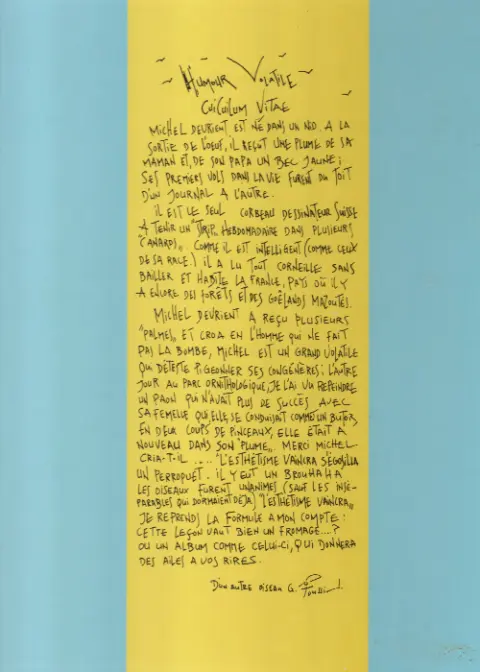 HUMOUR VOLATILE
CUICUILUM VITAE
MICHEL DEVRIENT EST NÉ DANS UN NID. A LA
SORTIE DE L'OEUF, IL REÇUT UNE PLUME DE SA
MAMAN ET, DE SON PAPA UN BEC JAUNE ;
SES PREMIERS VOLS DANS LA VIE FURENT DU TOIT
D'UN JOURNAL A L'AUTRE.
IL EST LE SEUL CORBEAU DESSINATEUR SUISSE
A TENIR UN "STRIP" HEBDOMADAIRE DANS PLUSIEURS
"CANARDS". COMME IL EST INTELLIGENT (COMME CEUX
DE SA RACE.) IL A LU TOUT CORNEILLE SANS
BAILLER ET HABITE LA FRANCE, PAYS OÙ IL Y
A ENCORE DES FORÊTS ET DES GOÉLANDS MAZOUTÉS.
MICHEL DEVRIENT A REÇU PLUSIEURS
"PALMES" ET CROA EN L'HOMME QUI NE FAIT
PAS LA BOMBE, MICHEL EST UN GRAND VOLATILE
QUI DÉTESTE PIGEONNER SES CONGÉNÈRES ; L'AUTRE
JOUR AU PARC ORNITHOLOGIQUE, JE L'AI VU REPEINDRE
UN PAON QUI N'AVAIT PLUS DE SUCCÈS AVEC
SA FEMELLE QUI ELLE, SE CONDUISAIT COMME UN BUTOR,
EN DEUX COUPS DE PINCEAUX, ELLE ÉTAIT A
NOUVEAU DANS SON PLUME". MERCI MICHEL
CRIA-T-IL .... "L'ESTHÉTISME VAINCRA" S'ÉGOSILLA
UN PERROQUET. IL Y EUT UN BROUHAHA
LES OISEAUX FURENT UNANIMES (SAUF LES INSÉ-
PARABLES QUI DORMAIENT DÉJA) "L'ESTHÉTISME VAINCRA"
JE REPRENDS LA FORMULE A MON COMPTE :
CETTE LEÇON VAUT BIEN UN FROMAGE....?
OU UN ALBUM COMME CELUI-CI, QUI DONNERA
DES AILES A VOS RIRES.
D'UN AUTRE OISEAU G.